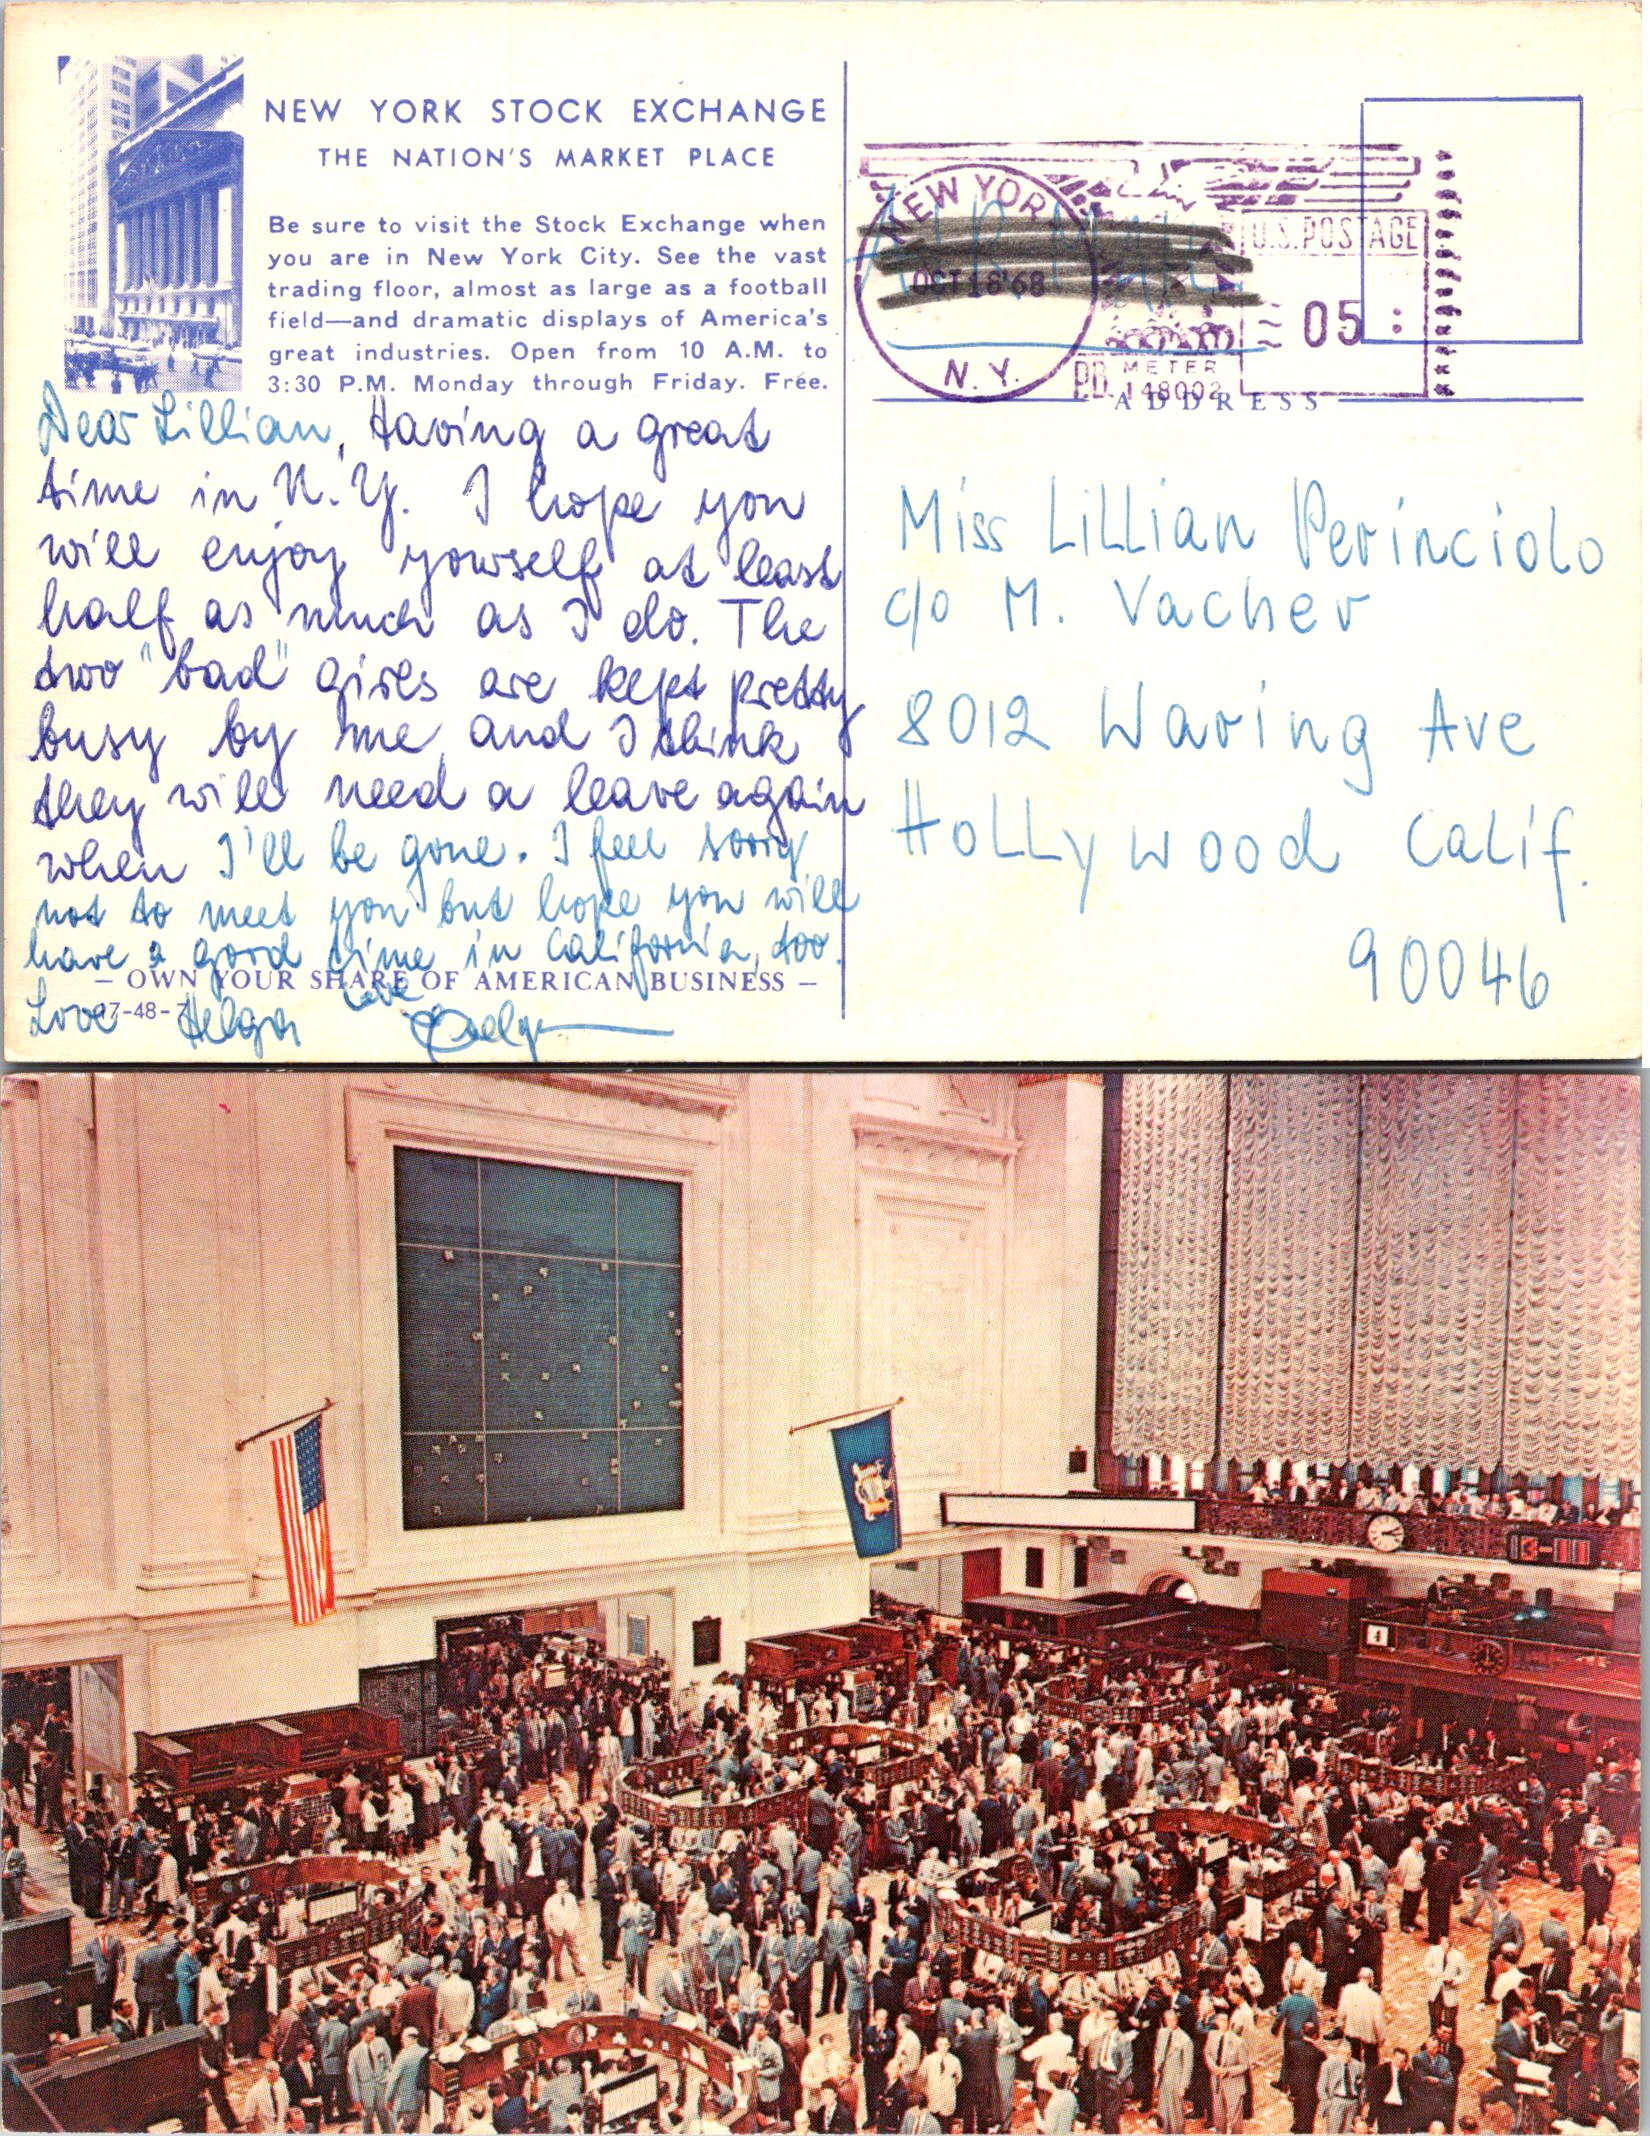 NEW YORK STOCK EXCHANGE
THE NATION'S MARKET PLACE
Be sure to visit the Stock Exchange when
you are in New York City. See the vast
trading floor, almost as large as a football
field—and dramatic displays of America's
great industries. Open from 10 A.M. to
3:30 P.M. Monday through Friday. Free.
Dear Lillian, Having a great
time in N.Y. I hope you
will enjoy yourself at least
half as much as I do. The
two "bad" girls are kept pretty
busy by me and I think
they will need a leave again
when I'll be gone. I feel sorry
not to meet you but hope you will
have a good time in California, too.
— OWN YOUR SHARE OF AMERICAN BUSINESS —
17-48-7
Love Helga
Love
NEW YORK
OCT 18 '68
N.Y.
U.S. POSTAGE
05
P.B. METER
148002
ADDRESS
Miss Lillian Perinciolo
c/o M. Vacher
8012 Waring Ave
Hollywood Calif.
90046
4